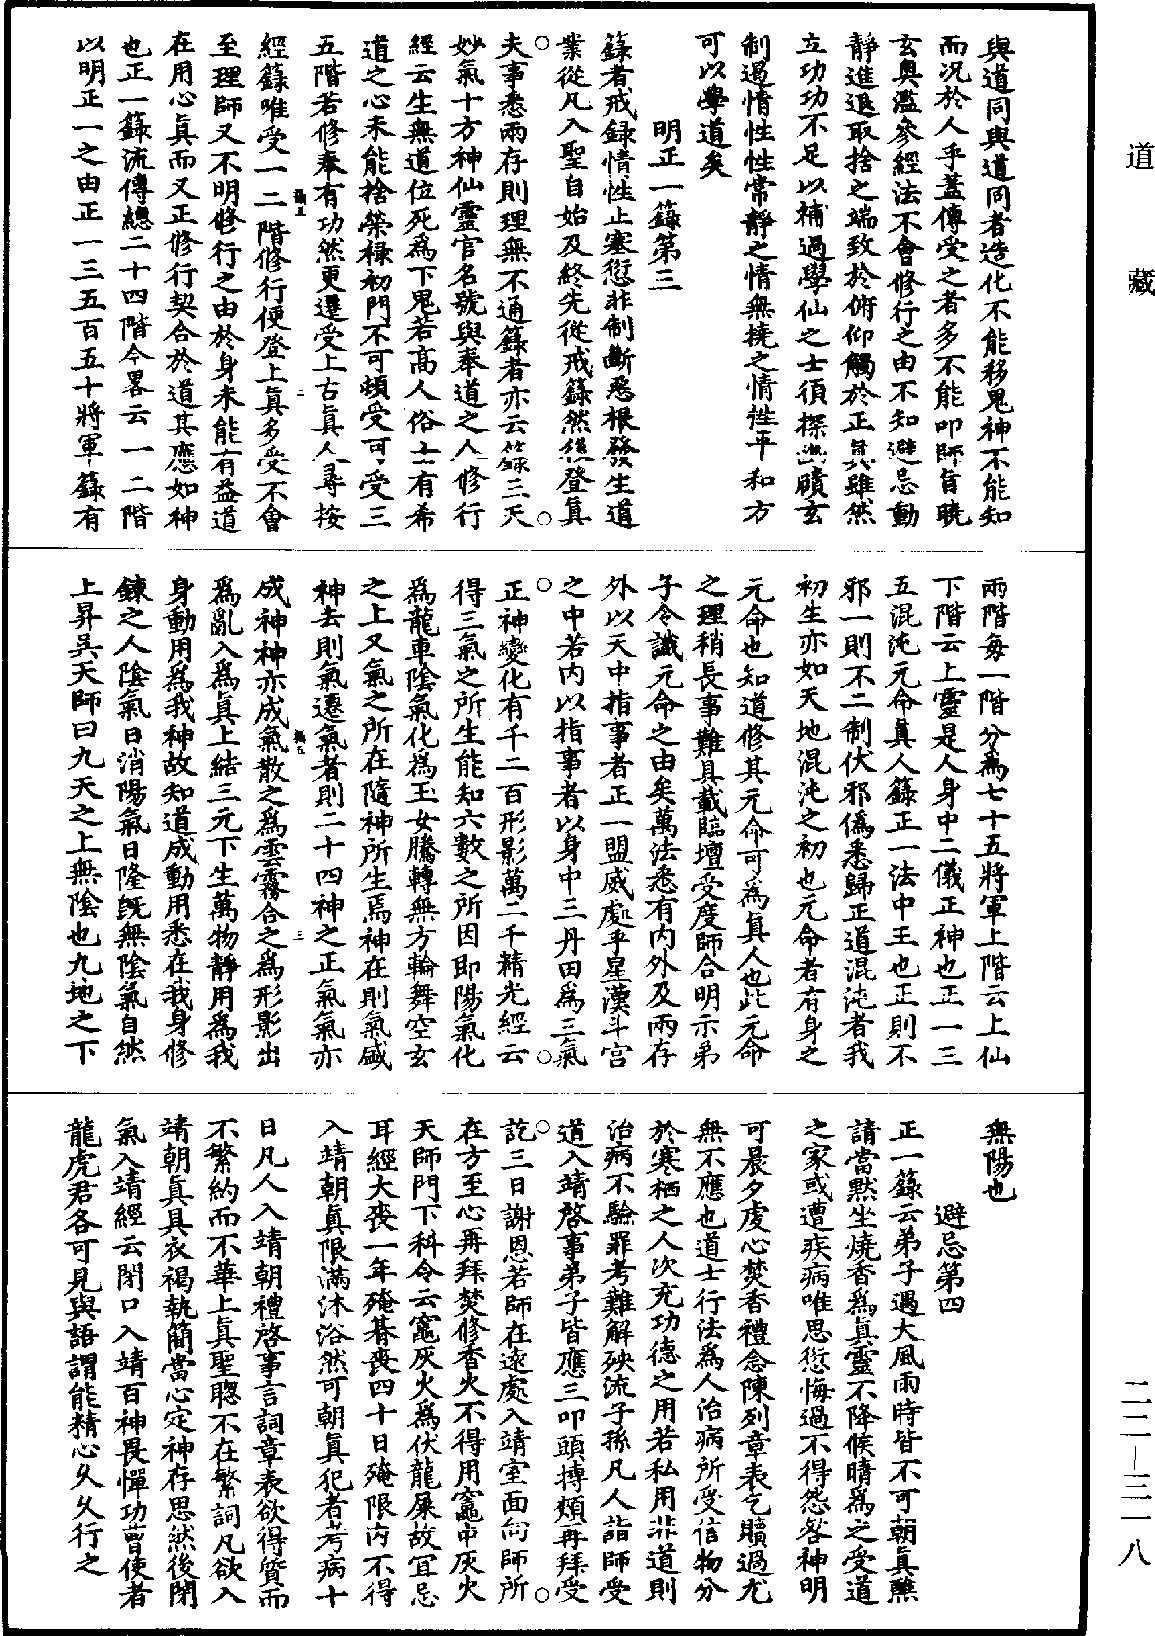 道藏
與道同與道同者造化不能移鬼神不能知
而況於人乎蓋傳受之者多不能叩師旨曉
玄奧濫參經法不會修行之由不知避忌動
靜進退取捨之端致於俯仰觸於正真雖然
立功功不足以補過學仙之士須探幽賾玄
制遏情性性常靜之情無撓之情性平和方
可以學道矣
明正一籙第三
籙者戒錄情性止塞愆非制斷惡根發生道
業從凡入聖自始及終先從戒籙然後登真
夫事悉兩存則理無不通籙者亦云籙三天
妙氣十方神仙靈官名號與奉道之人修行
經云生無道位死為下鬼若高人俗士有希
道之心未能捨榮祿初門不可頓受可受三
五階若修奉有功然更遷受上古真人尋按
經籙唯受一二階修行便登上真多受不會
至理師又不明修行之由於身未能有益道
在用心真而又正修行契合於道其應如神
也正一籙流傳總二十四階今畧云一二階
以明正一之由正一三五百五十將軍籙有
兩階每一階分為七十五將軍上階云上仙
下階云上靈是人身中二儀正神也正一三
五混沌元命真人籙正一法中王也正則不
邪一則不二制伏邪偽悉歸正道混沌者我
初生亦如天地混沌之初也元命者有身之
元命也知道修其元命可為真人也此元命
之理稍長事難具載臨壇受度師合明示弟
子令識元命之由矣萬法悉有內外及兩存
外以天中指事者正一盟威處乎星漢斗宮
之中若內以指事者以身中三丹田為三氣
正神變化有千二百形影萬二千精光經云
得三氣之所生能知六數之所因即陽氣化
為龍車陰氣化為玉女騰轉無方輪舞空玄
之上又氣之所在隨神所生焉神在則氣盛
神去則氣遷氣者則二十四神之正氣氣亦
成神神亦成氣散之為雲霧合之為形影出
為亂入為真上結三元下生萬物靜用為我
身動用為我神故知道成動用悉在我身修
鍊之人陰氣日消陽氣日隆既無陰氣自然
上昇吳天師曰九天之上無陰也九地之下
無陽也
避忌第四
正一籙云弟子遇大風雨時皆不可朝真醮
請當黙坐燒香為真靈不降候晴為之受道
之家或遭疾病唯思愆悔過不得怨咎神明
可晨夕虔心焚香禮念陳列章表乞贖過尤
無不應也道士行法為人治病所受信物分
於寒栖之人次充功德之用若私用非道則
治病不驗罪考難解殃流子孫凡人詣師受
道入靖啓事弟子皆應三叩頭搏頰再拜受
訖三日謝恩若師在遠處入靖室面向師所
在方至心再拜焚修香火不得用竈中灰火
天師門下科令云竈灰火為伏龍屎故宜忌
耳經大喪一年殗朞喪四十日殗限內不得
入靖朝真限滿沐浴然可朝真犯者考病十
日凡人入靖朝禮啓事言詞章表欲得質而
不繁約而不華上真聖聰不在繁詞凡欲入
靖朝真具衣褐執簡當心定神存思然後閉
氣入靖經云閉口入靖百神畏憚功曹使者
龍虎君各可見與語謂能精心久久行之
二二—三一八